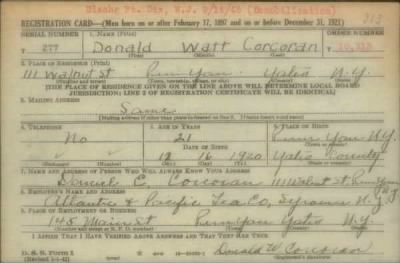 Dischg Ft. Dix, N.J. 2/16/46 (Demobilization)
REGISTRATION CARD—(Men born on or after February 17, 1897 and on or before December 31, 1921)
SERIAL NUMBER 1. NAME (Print) ORDER NUMBER
T 277 Donald Watt Corcoran
(First) (Middle) (Last)
2. PLACE OF RESIDENCE (Print)
111 Walnut St Penn Yan Yates N.Y.
(THE PLACE OF RESIDENCE GIVEN ON THE LINE ABOVE WILL DETERMINE LOCAL BOARD
JURISDICTION; LINE 2 OF REGISTRATION CERTIFICATE WILL BE IDENTICAL)
3. MAILING ADDRESS
Same
4. TELEPHONE 5. AGE IN YEARS 6. PLACE OF BIRTH
No 21 Penn Yan N.Y.
DATE OF BIRTH
12 16 1920 Yates County
(Mo.) (Day) (Yr.)
7. NAME AND ADDRESS OF PERSON WHO WILL ALWAYS KNOW YOUR ADDRESS
C. Corcoran 111 Walnut St, Penn Yan
8. EMPLOYER'S NAME AND ADDRESS
Atlantic & Pacific Tea Co, Syracuse N.Y.
9. PLACE OF EMPLOYMENT OR BUSINESS
145 Main St Penn Yan Yates N.Y.
I AFFIRM THAT I HAVE VERIFIED ABOVE ANSWERS AND THAT THEY ARE TRUE.
D. S. S. FORM 1
Donald W. Corcoran